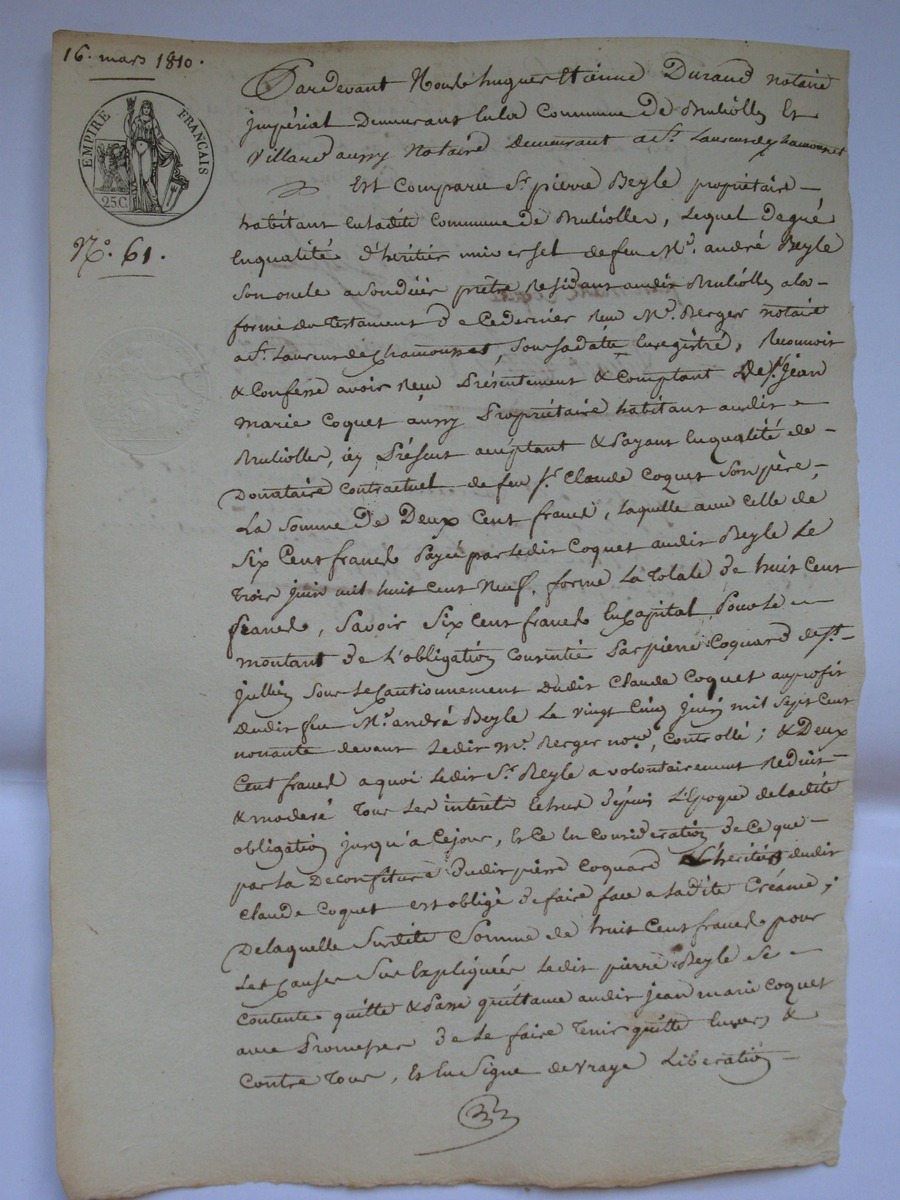 16. mars 1810.
EMPIRE FRANÇAIS
25C.
N.o 61.
Pardevant Nous hugues Etienne Durand notaire
jmpérial Demeurant en la Commune De Bruliolles Et
Villard aussy Notaire Demeurant a St. Laurent de Chamousset
Est Comparu Sr. pierre Beyle propriétaire —
habitant en ladite Commune De Bruliolles, Lequel De gré
En qualité d'héritier universel de feu Mr. andré Beyle
Son oncle a Son décès prêtre Résidant audit Bruliolles a la
forme du Testament De Ce dernier Reçu Me. Berger notaire
a St. Laurent de Chamousset, Sous Sa datte Enregistré, Reconnoit
& Confesse avoir Reçu Présentement & Comptant De Sr. Jean
marie Coquet aussy Propriétaire habitant audit —
Bruliolles, icy Présent acceptant & Payant En qualité de —
Donataire Contractuel de feu Sr. Claude Coquet Son père —
La Somme De Deux Cent francs, Laquelle avec Celle de
Six Cent francs Payée par Ledit Coquet audit Beyle Le
Trois juin mil huit cent Neuf, forme La Totale De huit Cent
francs, Savoir Six Cent francs En Capital Pour Le —
montant De L'obligation Consentie Par pierre Coquard de St. —
jullien Sous Le Cautionnement Dudit Claude Coquet au profit
Dudit feu Mr. andré Beyle Le vingt Cinq juin mil Sept Cent
nonante devant Ledit Me. Berger nore., Controllé; & Deux
Cent francs a quoi Ledit Sr. Beyle a volontairement Réduit —
& modéré Tous Les intérêts Echus Depuis L'Epoque de la dite
obligation jusqu'à Ce jour, Et Ce En Considération De Ce que —
par La Deconfiture Dudit pierre Coquard L'heritier dudit
Claude Coquet est obligé De faire face a La dite Créance;
De laquelle Susdite Somme de huit Cent francs pour
Les Causes Sus Expliquées Ledit pierre Beyle Se —
Contente quitte & Passe quittance audit jean marie Coquet
avec Promesses De Le faire Tenir quitte Envers &
Contre Tous, Et En Signe de vraye Libération —